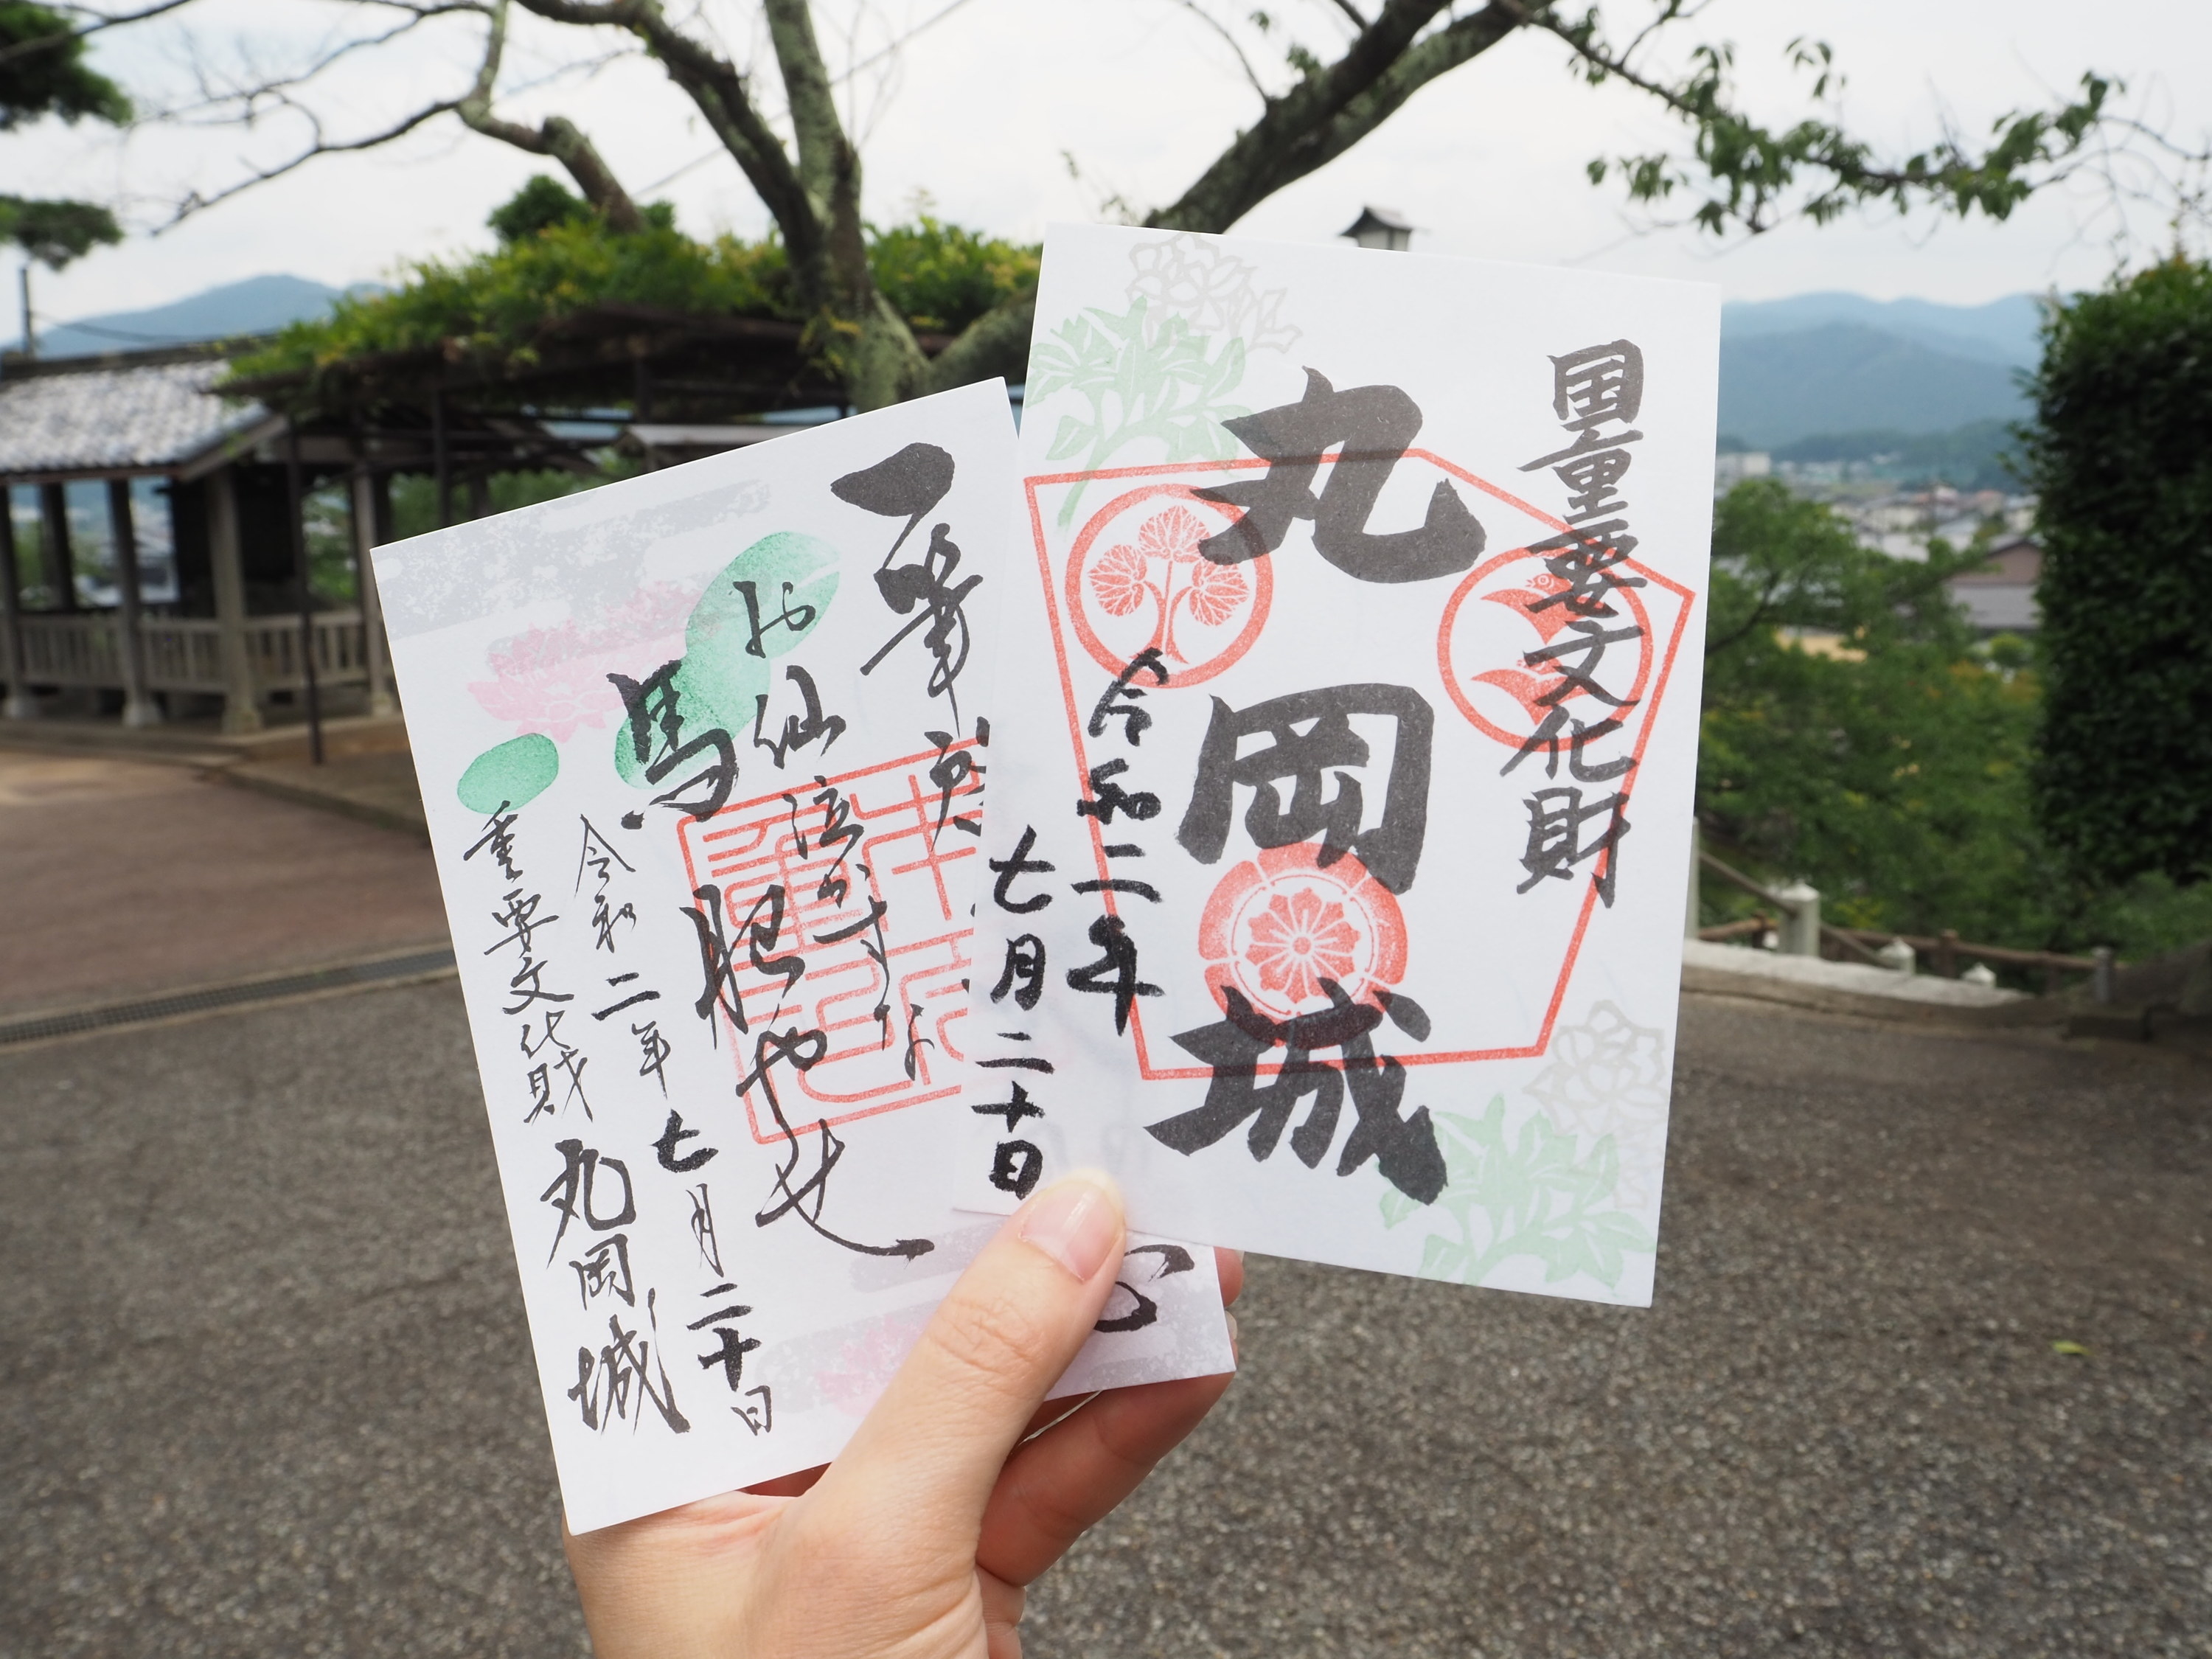 国重要文化財
丸岡城
令和二年
七月二十日
一筆
お仙泣かすな
馬肥やせ
令和二年七月二十日
重要文化財 丸岡城